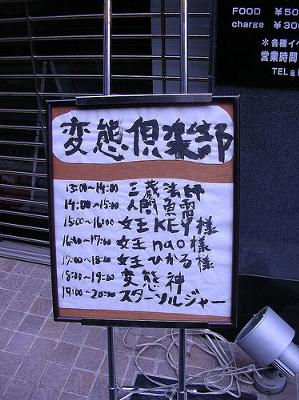 FOOD ¥50
charge ¥30
*各種イベ
営業時間
TEL &
変態倶楽部
13:00~14:00 三蔵法師
14:00~15:00 人間魚雷
15:00~16:00 女王KEY様
16:00~17:00 女王nao様
17:00~18:00 女王ひかる様
18:00~19:00 変態神
19:00~20:00 スターソルジャー